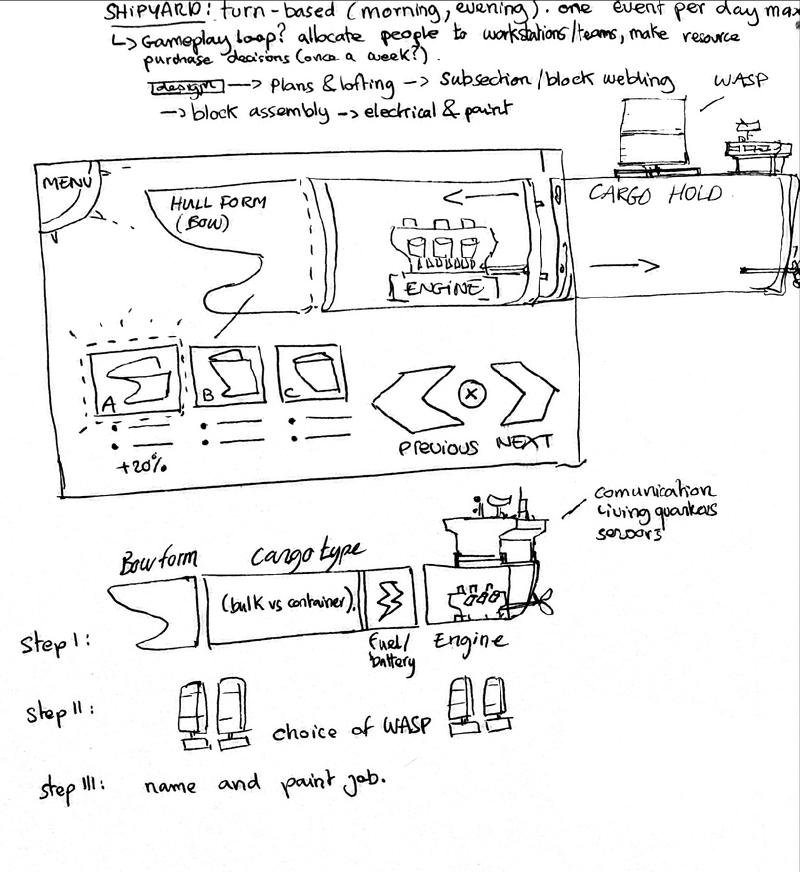 SHIPYARD: turn-based (morning, evening). one event per day max
↳ Gameplay loop? allocate people to workstations/teams, make resource
purchase decisions (once a week?).
design → Plans & lofting → Subsection/block welding
→ block assembly → electrical & paint
WASP
MENU
HULL FORM
(BOW)
ENGINE
CARGO HOLD
A
B
C
+20%
X
PREVIOUS
NEXT
comunication
living quarters
sensors
Bow form
Cargo type
(bulk vs container).
Step I:
Fuel/
battery
Engine
Step II:
choice of WASP
step III:
name and paint job.